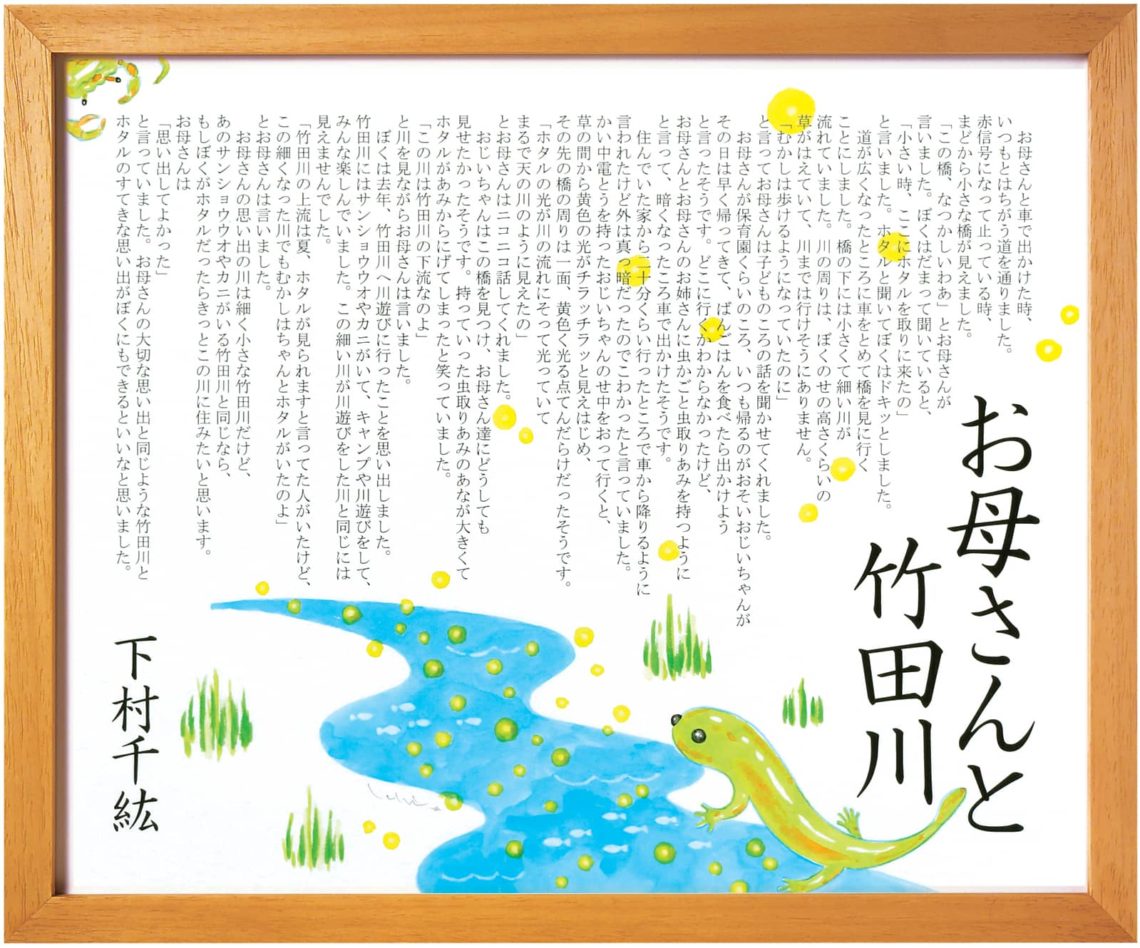 お母さんと
竹田川
お母さんと車で出かけた時、
いつもとはちがう道を通りました。
赤信号になって止っている時、
まどから小さな橋が見えました。
「この橋、なつかしいわあ」とお母さんが
言いました。ぼくはだまって聞いていると、
「小さい時、ここにホタルを取りに来たの」
と言いました。ホタルと聞いてぼくはドキッとしました。
道が広くなったところに車をとめて橋を見に行く
ことにしました。橋の下には小さくて細い川が
流れていました。川の周りは、ぼくのせの高さくらいの
草がはえていて、川までは行けそうにありません。
「むかしは歩けるようになっていたのに」
と言ってお母さんは子どものころの話を聞かせてくれました。
お母さんが保育園くらいのころ、いつも帰るのがおそいおじいちゃんが
その日は早く帰ってきて、ばんごはんを食べたら出かけよう
と言ったそうです。どこに行くかわからなかったけど、
お母さんとお母さんのお姉さんに虫かごと虫取りあみを持つように
と言って、暗くなったころ車で出かけたそうです。
住んでいた家から二十分くらい行ったところで車から降りるように
言われたけど外は真っ暗だったのでこわかったと言っていました。
かい中電とうを持ったおじいちゃんのせ中をおって行くと、
草の間から黄色の光がチラッチラッと見えはじめ、
その先の橋の周りは一面、黄色く光る点てんだらけだったそうです。
「ホタルの光が川の流れにそって光っていて
まるで天の川のように見えたの」
とお母さんはニコニコ話してくれました。
おじいちゃんはこの橋を見つけ、お母さん達にどうしても
見せたかったそうです。持っていった虫取りあみのあなが大きくて
ホタルがあみからにげてしまったと笑っていました。
「この川は竹田川の下流なのよ」
と川を見ながらお母さんは言いました。
ぼくは去年、竹田川へ川遊びに行ったことを思い出しました。
竹田川にはサンショウウオやカニがいて、キャンプや川遊びをして、
みんな楽しんでいました。この細い川が川遊びをした川と同じには
見えませんでした。
「竹田川の上流は夏、ホタルが見られますと言ってた人がいたけど、
この細くなった川でもむかしはちゃんとホタルがいたのよ」
とお母さんは言いました。
お母さんの思い出の川は細く小さな竹田川だけど、
あのサンショウウオやカニがいる竹田川と同じなら、
もしぼくがホタルだったらきっとこの川に住みたいと思います。
お母さんは
「思い出してよかった」
と言っていました。お母さんの大切な思い出と同じような竹田川と
ホタルのすてきな思い出がぼくにもできるといいなと思いました。
下村千紘